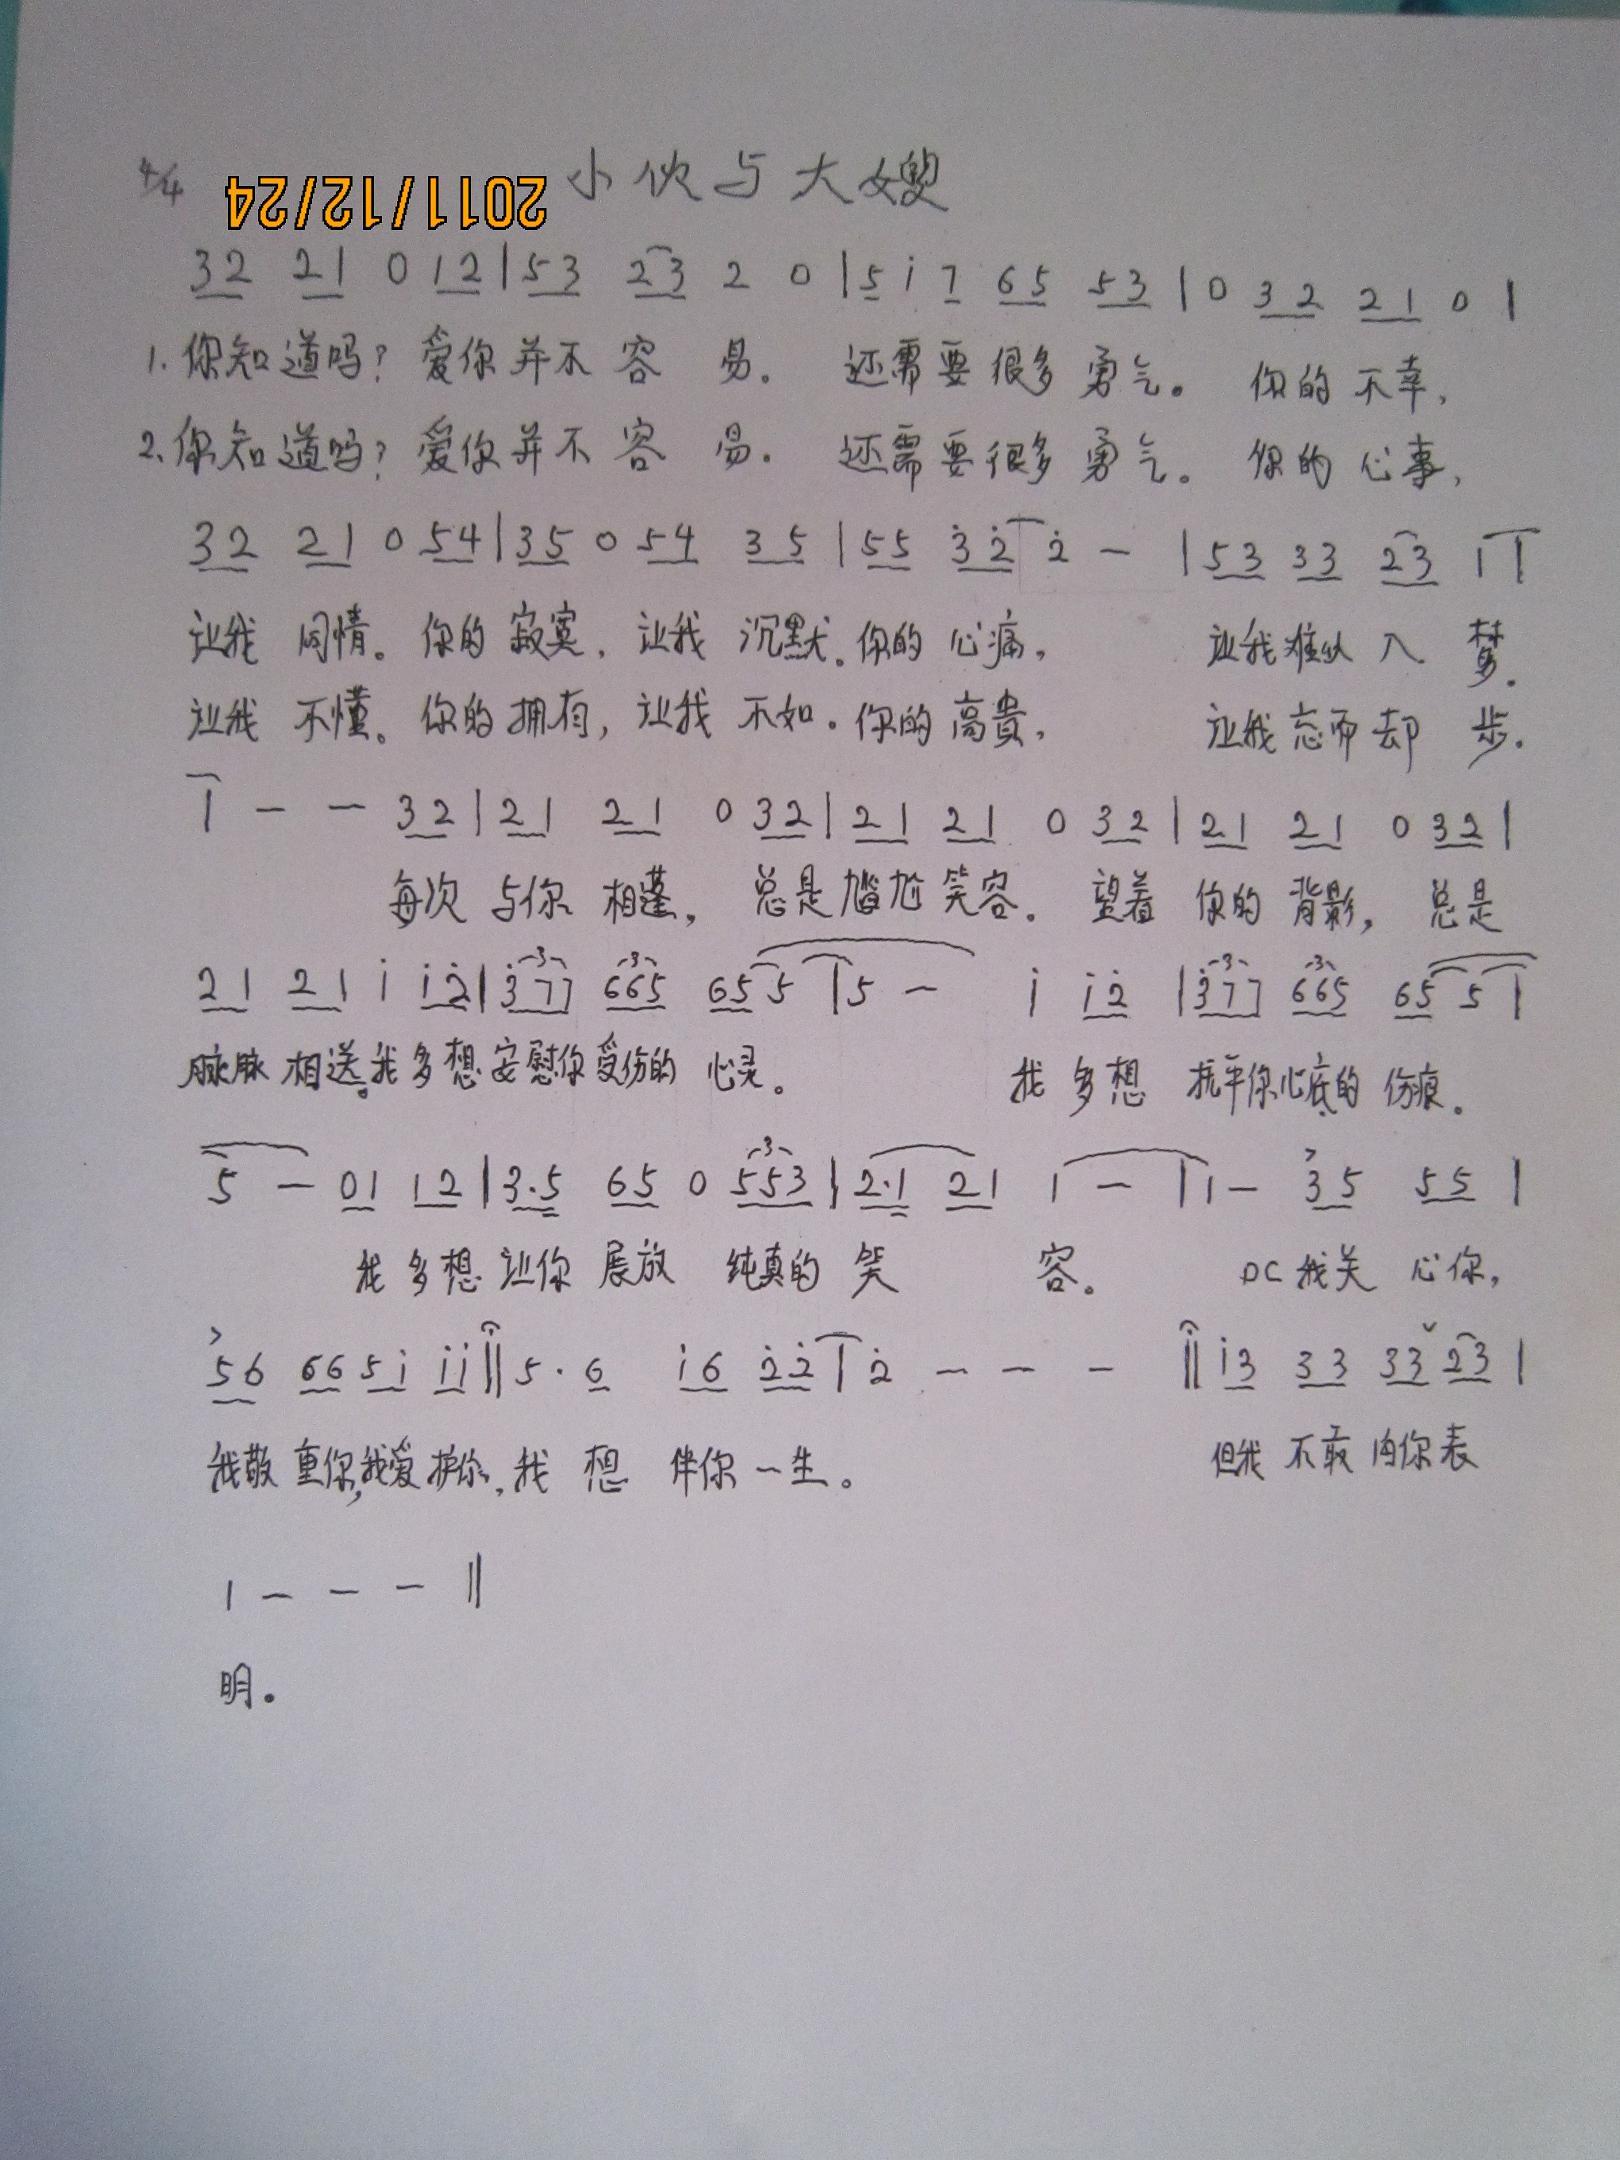 4/4 2011/12/24 小伙与大嫂
32 21 0 12|53 23 2 0|5 i 7 65 53|0 32 21 0|
1. 你知道吗？爱你并不容易。还需要很多勇气。你的不幸，
2. 你知道吗？爱你并不容易. 还需要很多勇气。你的心事，
32 21 0 54|35 0 54 35|55 3̇2̇ 2̇ — |53 33 23 1|
让我同情。你的寂寞，让我沉默。你的心痛，让我难以入梦.
让我不懂。你的拥有，让我不如。你的高貴，让我忘而却步.
1 — — 32|21 21 0 32|21 21 0 32|21 21 0 32|
每次与你相蓬，总是尴尬笑容. 望着你的背影，总是
21 21 i i2̇|3̇77 665 65 5|5 — i i2̇|3̇77 665 65 5|
脉脉相送。我多想安慰你受伤的心灵。我多想抚平你心底的伤痕。
5 — 01 12|3·5 65 0 553|2·1 21 1 — |1 — 35 55|
我多想让你展放纯真的笑容。DC 我关心你，
56 66 5i ii||5·6 i6 2̇2̇|2̇ — — — ||i3 33 33 23|
我敬重你，我爱护你，我想伴你一生。但我不敢向你表
1 — — — ||
明。